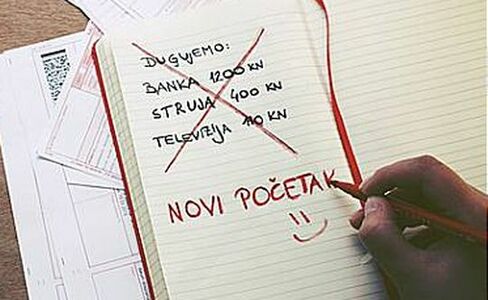 DUGUJEMO:
BANKA 1200 KN
STRUJA 400 KN
TELEVIZIJA 110 KN
NOVI POČETAK